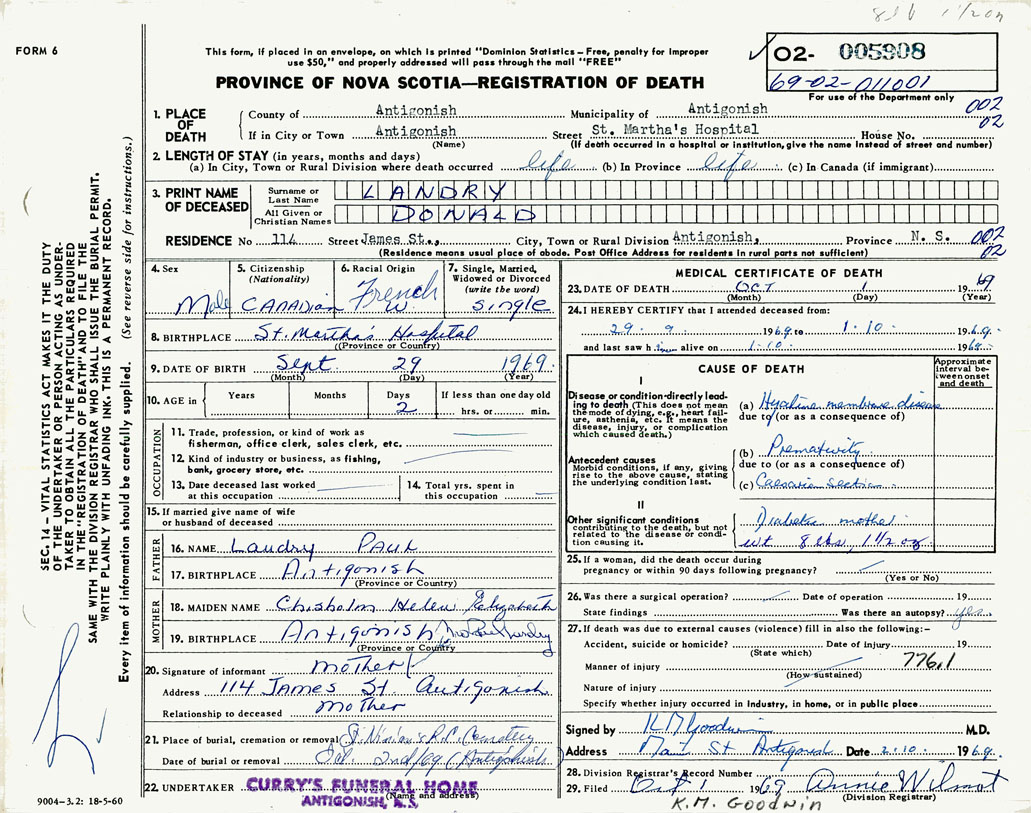 8 lb 1 1/2 oz
FORM 6
This form, if placed in an envelope, on which is printed "Dominion Statistics – Free, penalty for improper
use $50," and properly addressed will pass through the mail "FREE"
PROVINCE OF NOVA SCOTIA—REGISTRATION OF DEATH
02- 005908
69-02-011001
For use of the Department only
002
02
1. PLACE OF DEATH
County of Antigonish Municipality of Antigonish
If in City or Town Antigonish Street St. Martha's Hospital House No.
(Name) (If death occurred in a hospital or institution, give the name instead of street and number)
2. LENGTH OF STAY (in years, months and days)
(a) In City, Town or Rural Division where death occurred life (b) In Province life (c) In Canada (if immigrant)
3. PRINT NAME OF DECEASED
Surname or Last Name LANDRY
All Given or Christian Names DONALD
RESIDENCE No 114 Street James St., City, Town or Rural Division Antigonish, Province N. S. 002
02
(Residence means usual place of abode. Post Office Address for residents in rural parts not sufficient)
4. Sex Male
5. Citizenship (Nationality) CANADIAN
6. Racial Origin French W.
7. Single, Married, Widowed or Divorced (write the word) single
8. BIRTHPLACE St. Martha's Hospital
((Province or Country)
9. DATE OF BIRTH Sept 29 1969
(Month) (Day) (Year)
10. AGE in Years Months Days 2 If less than one day old
hrs. or min.
OCCUPATION
11. Trade, profession, or kind of work as
fisherman, office clerk, sales clerk, etc.
12. Kind of industry or business, as fishing,
bank, grocery store, etc.
13. Date deceased last worked at this occupation
14. Total yrs. spent in this occupation
15. If married give name of wife
or husband of deceased
FATHER
16. NAME Landry PAUL
17. BIRTHPLACE Antigonish
(Province or Country)
MOTHER
18. MAIDEN NAME Chisholm Helen Elizabeth
19. BIRTHPLACE Antigonish Mrs Paul Landry
(Province or Country)
20. Signature of informant mother
Address 114 JAMES St Antigonish
Relationship to deceased mother
21. Place of burial, cremation or removal St. Ninian's R.C. Cemetery
Date of burial or removal Oct. 2nd/69 (Antigonish)
22. UNDERTAKER CURRY'S FUNERAL HOME
(Name and address)
ANTIGONISH, N.S.
MEDICAL CERTIFICATE OF DEATH
23. DATE OF DEATH OCT 1 1969
(Month) (Day) (Year)
24. I HEREBY CERTIFY that I attended deceased from:
29. 9. 1969. to 1. 10. 1969.
and last saw him alive on 1.10. 1969.
CAUSE OF DEATH
Approximate interval between onset and death
I
Disease or condition directly leading to death (This does not mean
the mode of dying, e.g., heart failure, asthenia, etc. It means the
disease, injury, or complication
which caused death.)
(a) Hyaline membrane disease
due to (or as a consequence of)
Antecedent causes
Morbid conditions, if any, giving
rise to the above cause, stating
the underlying condition last.
(b) Prematurity
due to (or as a consequence of)
(c) Caesarian section
II
Other significant conditions
contributing to the death, but not
related to the disease or condition causing it.
Diabetic mother
wt 8 lbs, 1 1/2 oz
25. If a woman, did the death occur during
pregnancy or within 90 days following pregnancy?
(Yes or No)
26. Was there a surgical operation? Date of operation 19
State findings Was there an autopsy? yes
27. If death was due to external causes (violence) fill in also the following:–
Accident, suicide or homicide? Date of injury 19
(State which)
776.1
Manner of injury
(How sustained)
Nature of injury
Specify whether injury occurred in Industry, in home, or in public place
Signed by K M Goodwin M.D.
Address Main St Antigonish Date 2.10. 1969.
28. Division Registrar's Record Number
29. Filed Oct 1 1969 Annie Wilmot
(Division Registrar)
K.M. GOODWIN
SEC. 14 – VITAL STATISTICS ACT MAKES IT THE DUTY
OF THE UNDERTAKER OR PERSON ACTING AS UNDERTAKER TO OBTAIN ALL THE PARTICULARS REQUIRED
IN THE "REGISTRATION OF DEATH" AND TO FILE THE
SAME WITH THE DIVISION REGISTRAR WHO SHALL ISSUE THE BURIAL PERMIT.
WRITE PLAINLY WITH UNFADING INK. THIS IS A PERMANENT RECORD.
Every item of information should be carefully supplied. (See reverse side for instructions.)
9004–3.2: 18-5-60